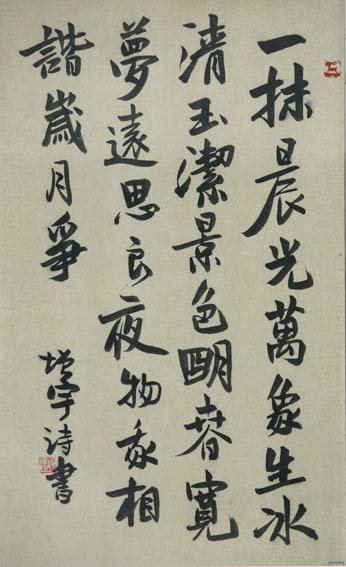 一抹晨光萬象生冰
清玉潔景色明春寬
夢遠思良夜物我相
諧歲月爭
宇詩書